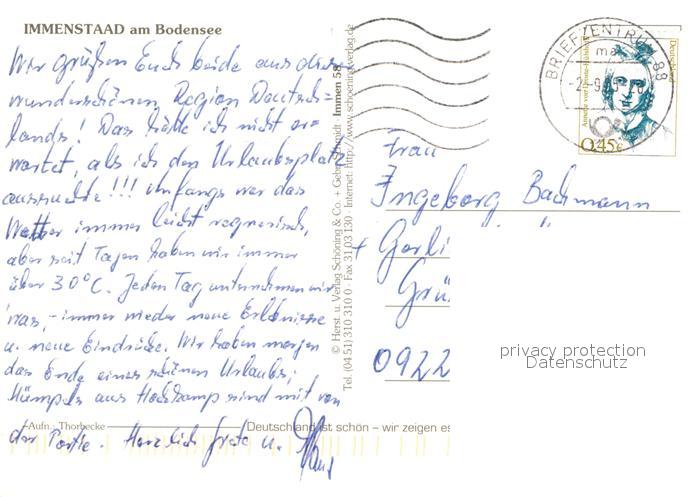 IMMENSTAAD am Bodensee
Wir grüßen Euch beide aus dieser
wunderschönen Region Deutsch=
lands! Das hätte ich nicht er=
wartet, als ich den Urlaubsplatz
aussuchte!!! Anfangs war das
Wetter immer leicht regnerisch,
aber seit Tagen haben wir immer
über 30°C. Jeden Tag unternehmen wir
was, - immer wieder neue Erlebnisse
u. neue Eindrücke. Wir haben morgen
das Ende eines schönen Urlaubs;
Hümpels aus Hochkamp sind mit von
der Partie. Herzlich grete u.
Aufn.: Thorbecke
Deutschland ist schön – wir zeigen es
© Herst. u. Verlag Schöning & Co. + Gebr. Schmidt · Immen 58
Tel. (04 51) 310 310 0 · Fax 31 03 130 · Internet: http://www.schoening-verlag.de
BRIEFZENTRUM 88
Deutschland
Annette von Droste-Hülshoff
0,45€
Frau
Ingeborg Bachmann
+ Gerli
Grü
0922
privacy protection
Datenschutz